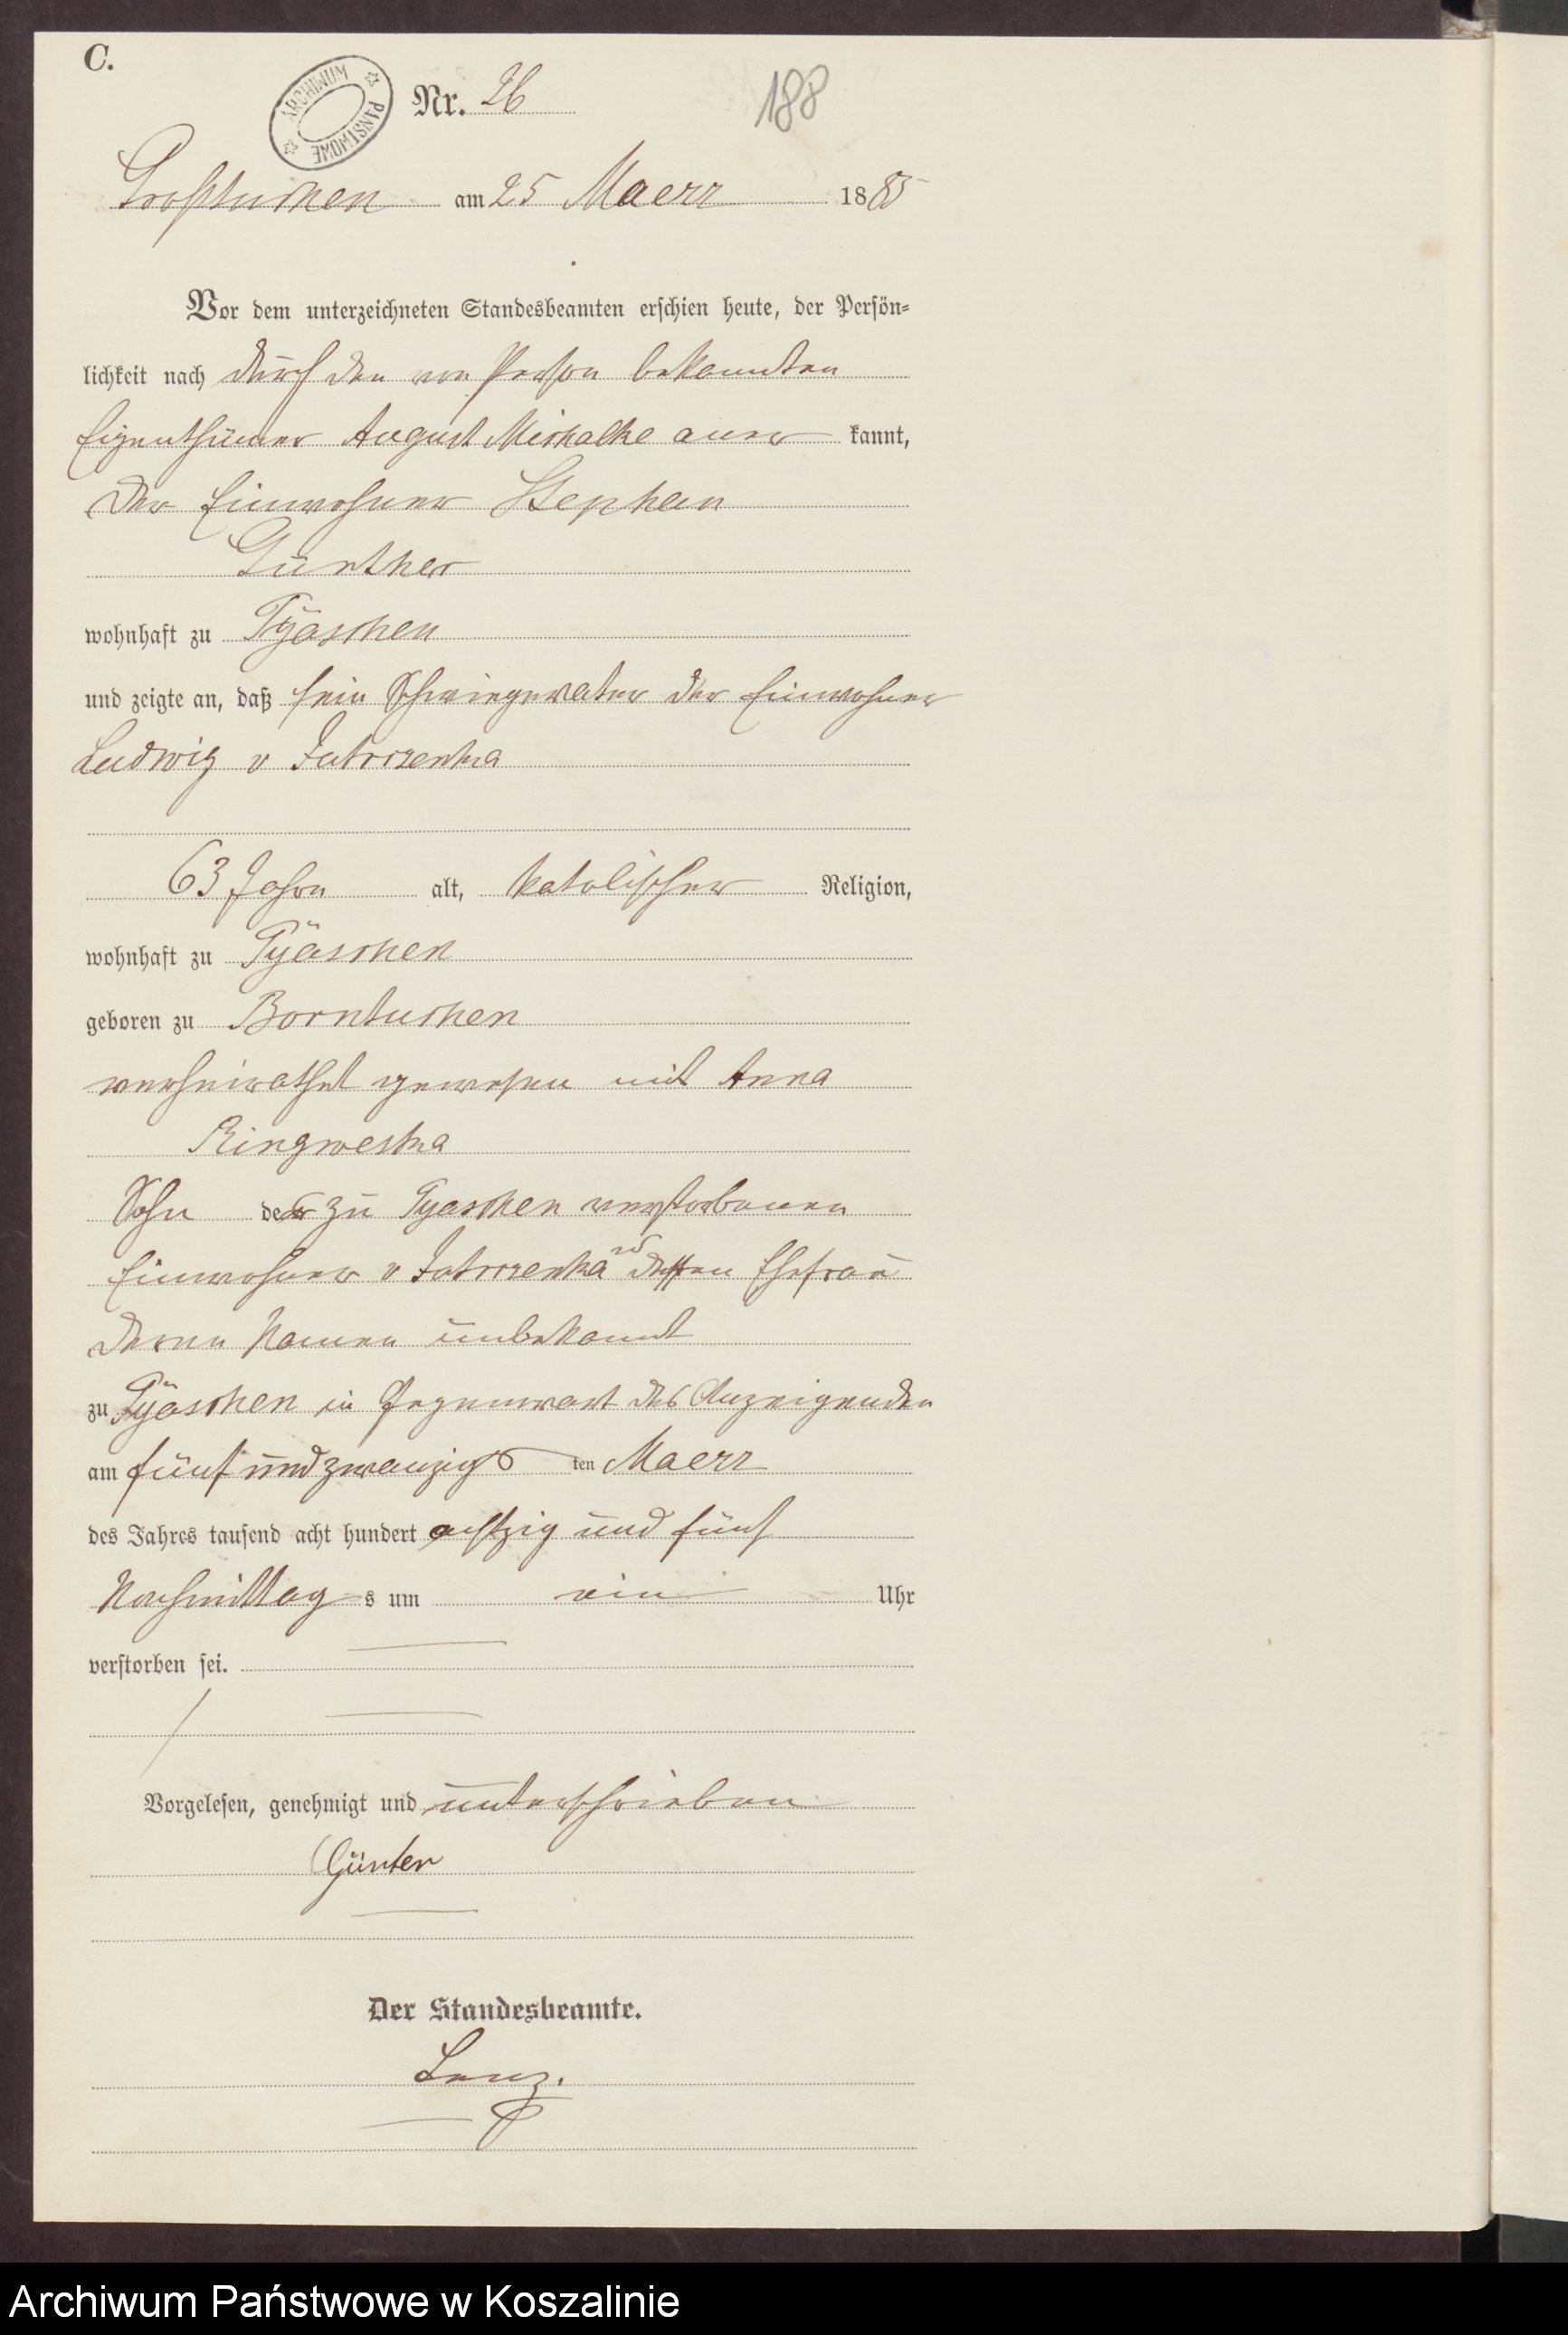 C.
ARCHIWUM PAŃSTWOWE
Nr. 26
188
Großtuchen am 25 Maerz 1885
Vor dem unterzeichneten Standesbeamten erschien heute, der Persön-
lichkeit nach durch den von Person bekannten
Eigenthümer August Mischalke aner kannt,
der Einwohner Stephan
Günther
wohnhaft zu Pÿaschen
und zeigte an, daß sein Schwiegervater der Einwohner
Ludwig v Jutrzenka
63 Jahre alt, katolischer Religion,
wohnhaft zu Pÿaschen
geboren zu Borntuchen
verheirathet gewesen mit Anna
Ringweska
Sohn der zu Pyaschen verstorbenen
Einwohner v Jutrzenka und dessen Ehefrau
deren Namen unbekannt
zu Pÿaschen in Gegenwart des Anzeigenden
am fünf und zwanzigs ten Maerz
des Jahres tausend acht hundert achtzig und fünf
Nachmittag s um ein Uhr
verstorben sei.
Vorgelesen, genehmigt und unterschrieben
Günter
Der Standesbeamte.
Lenz.
Archiwum Państwowe w Koszalinie